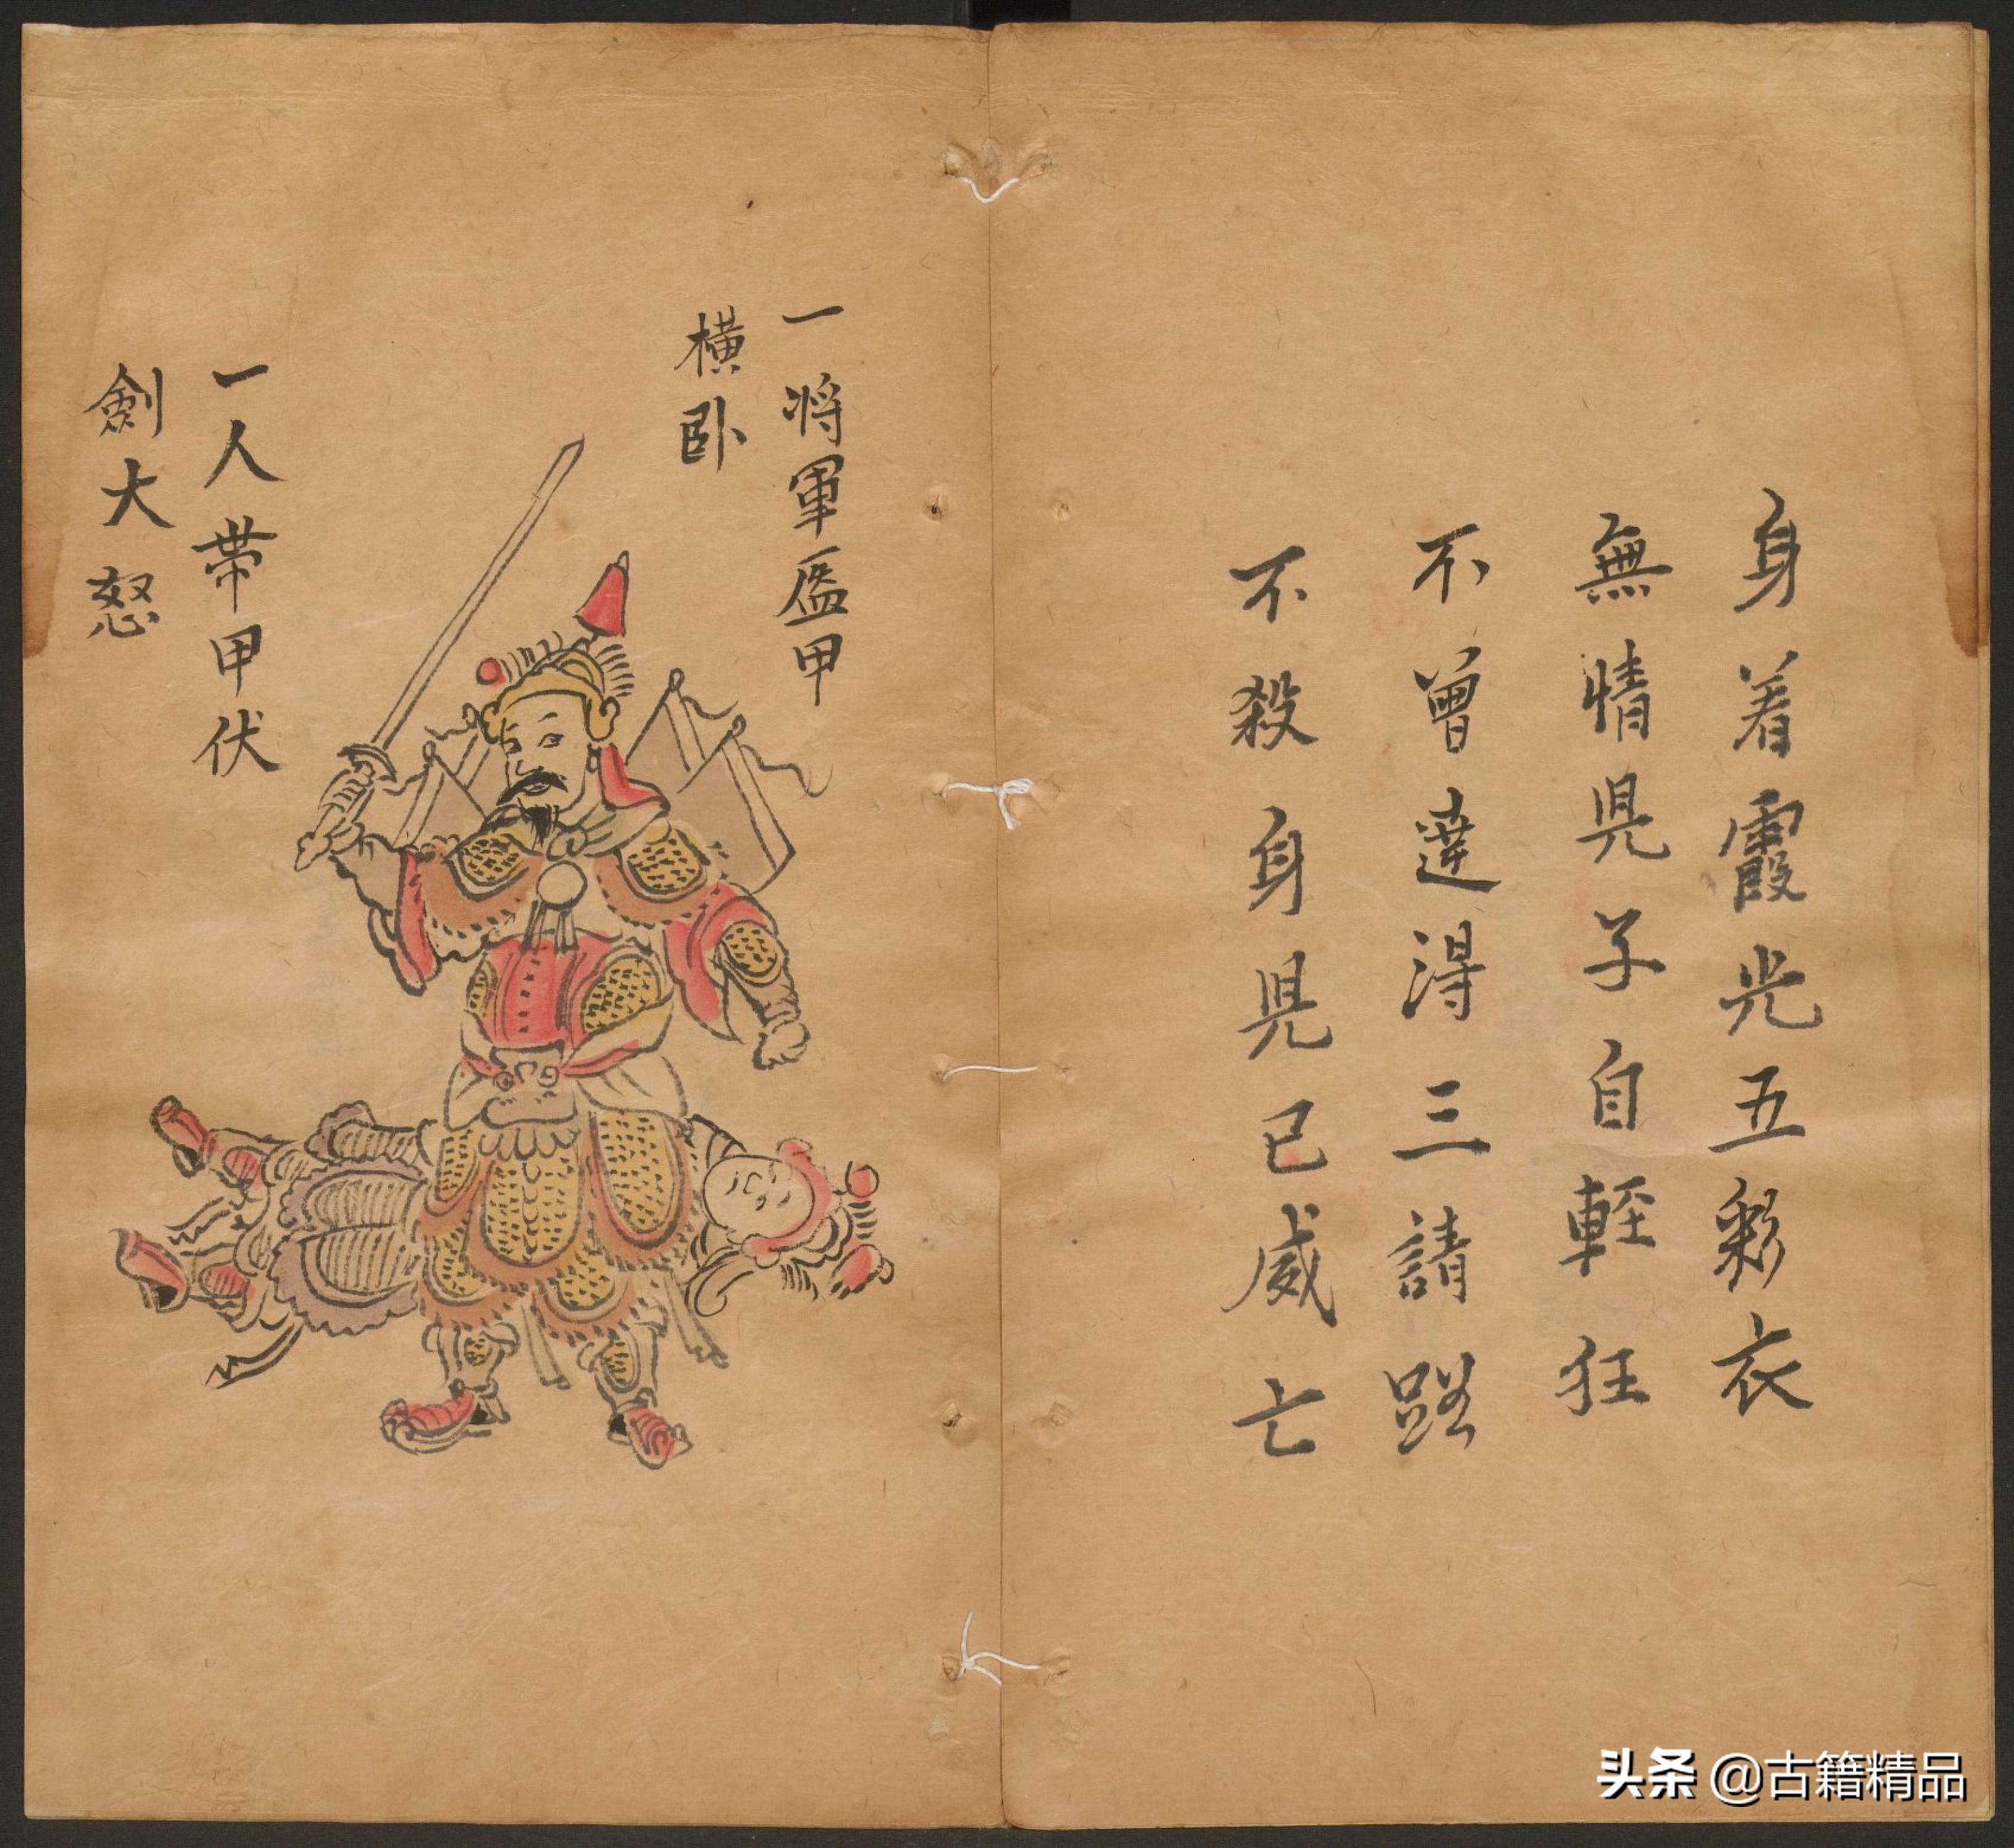 身着霞光五彩衣
無情児子自輕狂
不曾達得三請路
不殺身児已威亡
一将軍盔甲
横卧
一人带甲伏
劍大怒
头条 @古籍精品